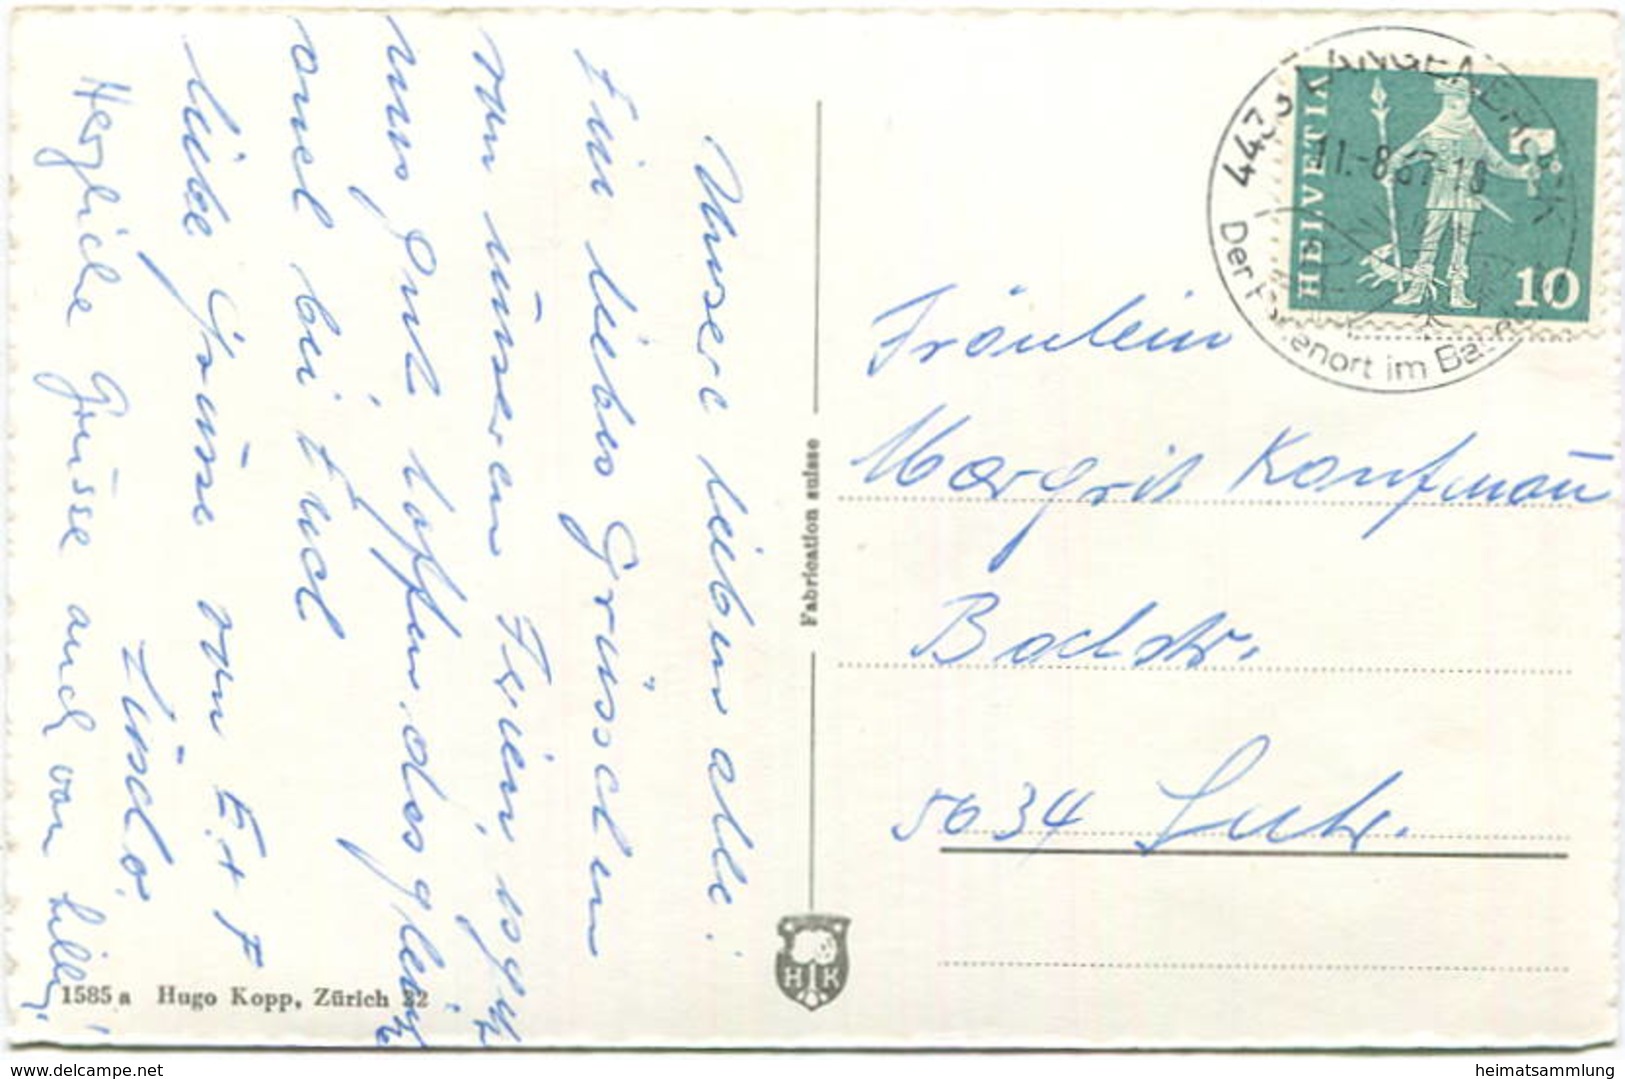 Unsere lieben alle!
Ein liebes Grüsschen
von unseren Ferien, es geht
uns gut hoffen desgleiche
auch bei Euch
liebe Grüsse von E + F
Herzliche Grüsse auch von Lilly!
Fabrication suisse
HK
1585 a Hugo Kopp, Zürich 22
HELVETIA
10
11.-8.67-18
Fräulein
Margrit Kaufmañ
Bachstr.
5034 Suhr.
delcampe.net
heimatsammlung